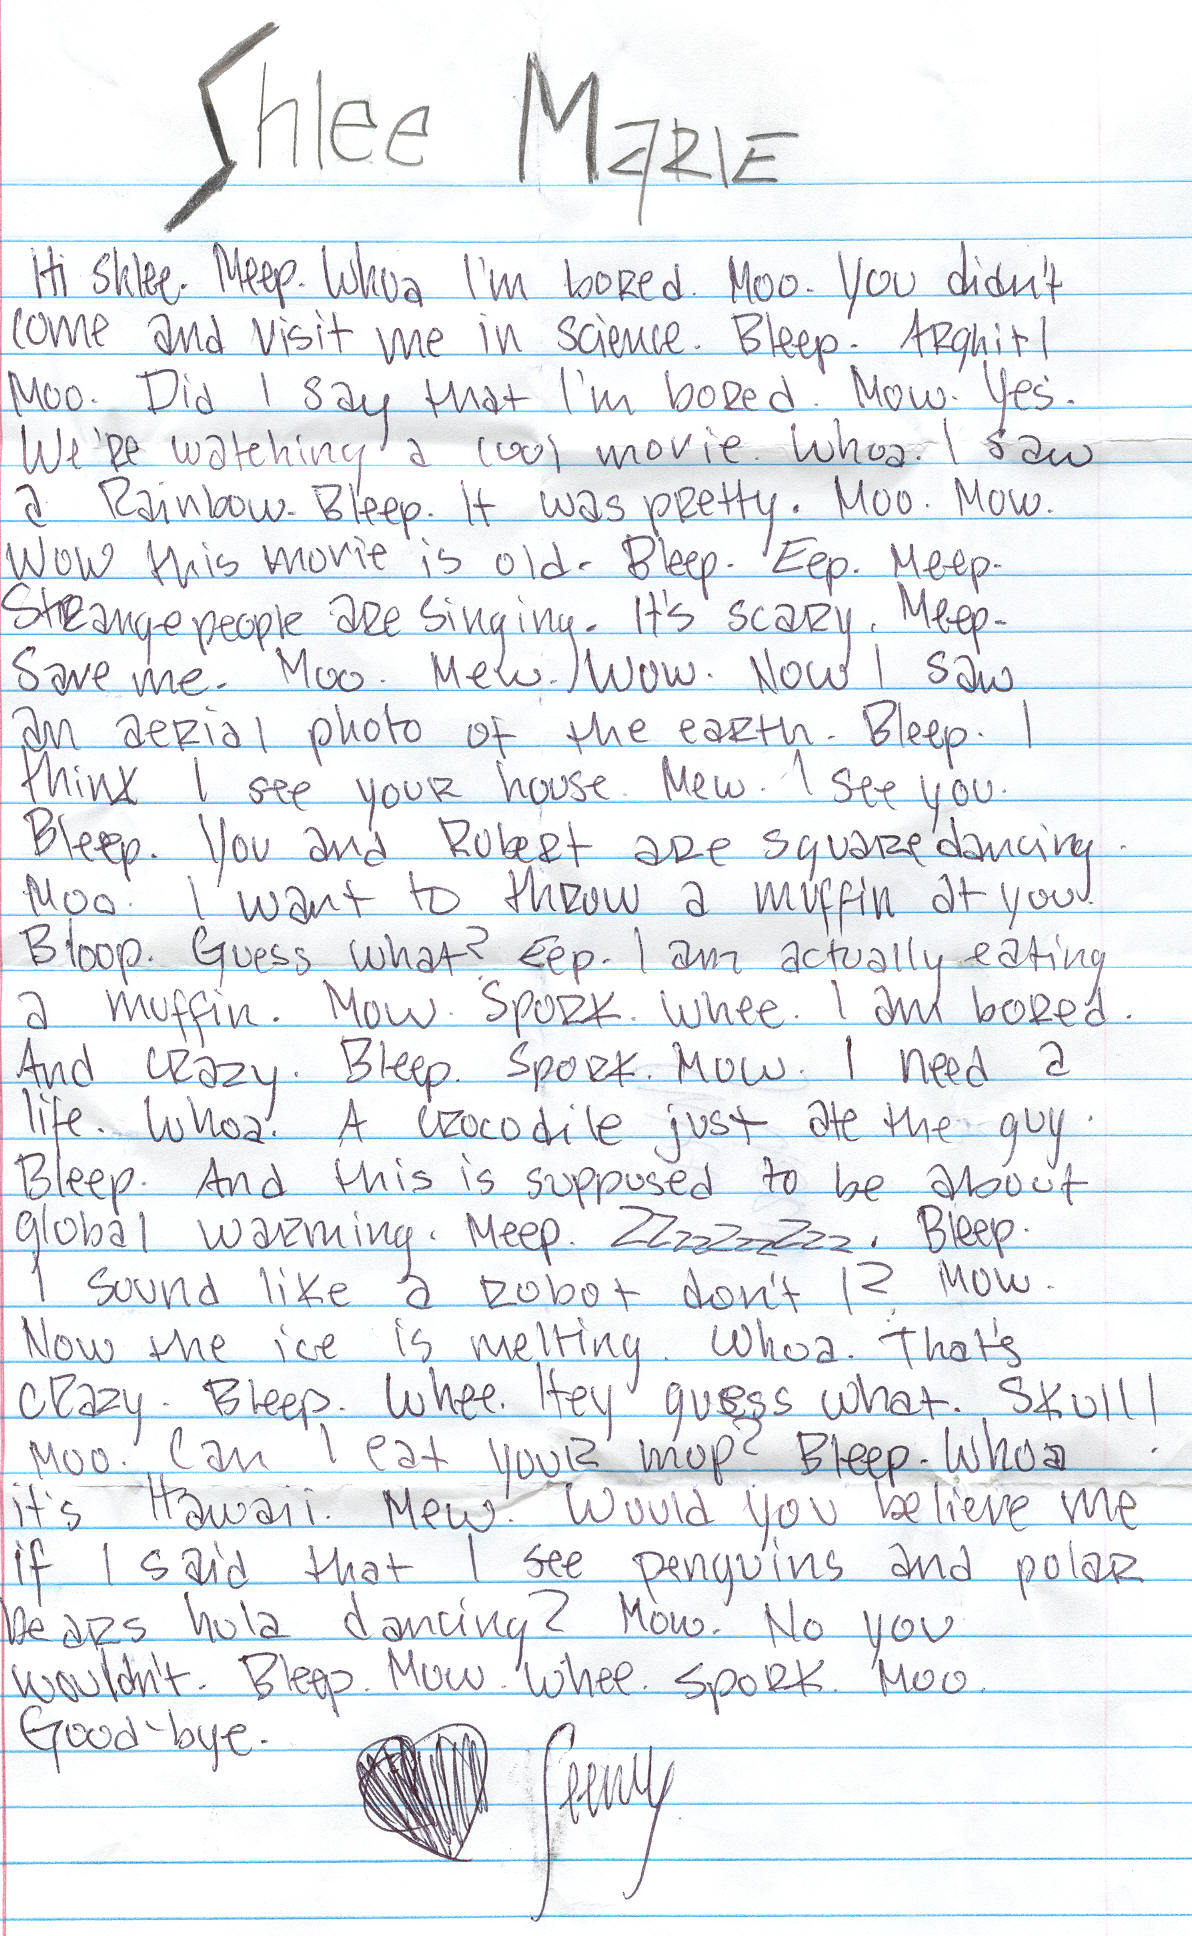 Shlee Marie
Hi Shlee. Meep. Whoa I'm bored. Moo. You didn't
come and visit me in science. Bleep.
Moo. Did I say that I'm bored. Mow. Yes.
We're watching a cool movie. Whoa. I saw
a Rainbow. Bleep. It was pretty. Moo. Mow.
Wow this movie is old. Bleep. Eep. Meep.
Strange people are singing. It's scary. Meep.
Save me. Moo. Mew. Wow. Now I saw
an aerial photo of the earth. Bleep. I
think I see your house. Mew. I see you.
Bleep. You and Robert are square dancing.
Moo. I want to throw a muffin at you.
Bloop. Guess what? Eep. I am actually eating
a muffin. Mow. Spork. Whee. I am bored.
And crazy. Bleep. Spork. Mow. I need a
life. Whoa. A crocodile just ate the guy.
Bleep. And this is supposed to be about
global warming. Meep. ZZzzZzzZzz. Bleep.
I sound like a robot don't I? Mow.
Now the ice is melting. Whoa. That's
crazy. Bleep. Whee. Hey guess what. Skull!
Moo. Can I eat your mop? Bleep. Whoa
it's Hawaii. Mew. Would you believe me
if I said that I see penguins and polar
bears hula dancing? Mow. No you
wouldn't. Bleep. Mow. Whee. Spork. Moo.
Good-bye.